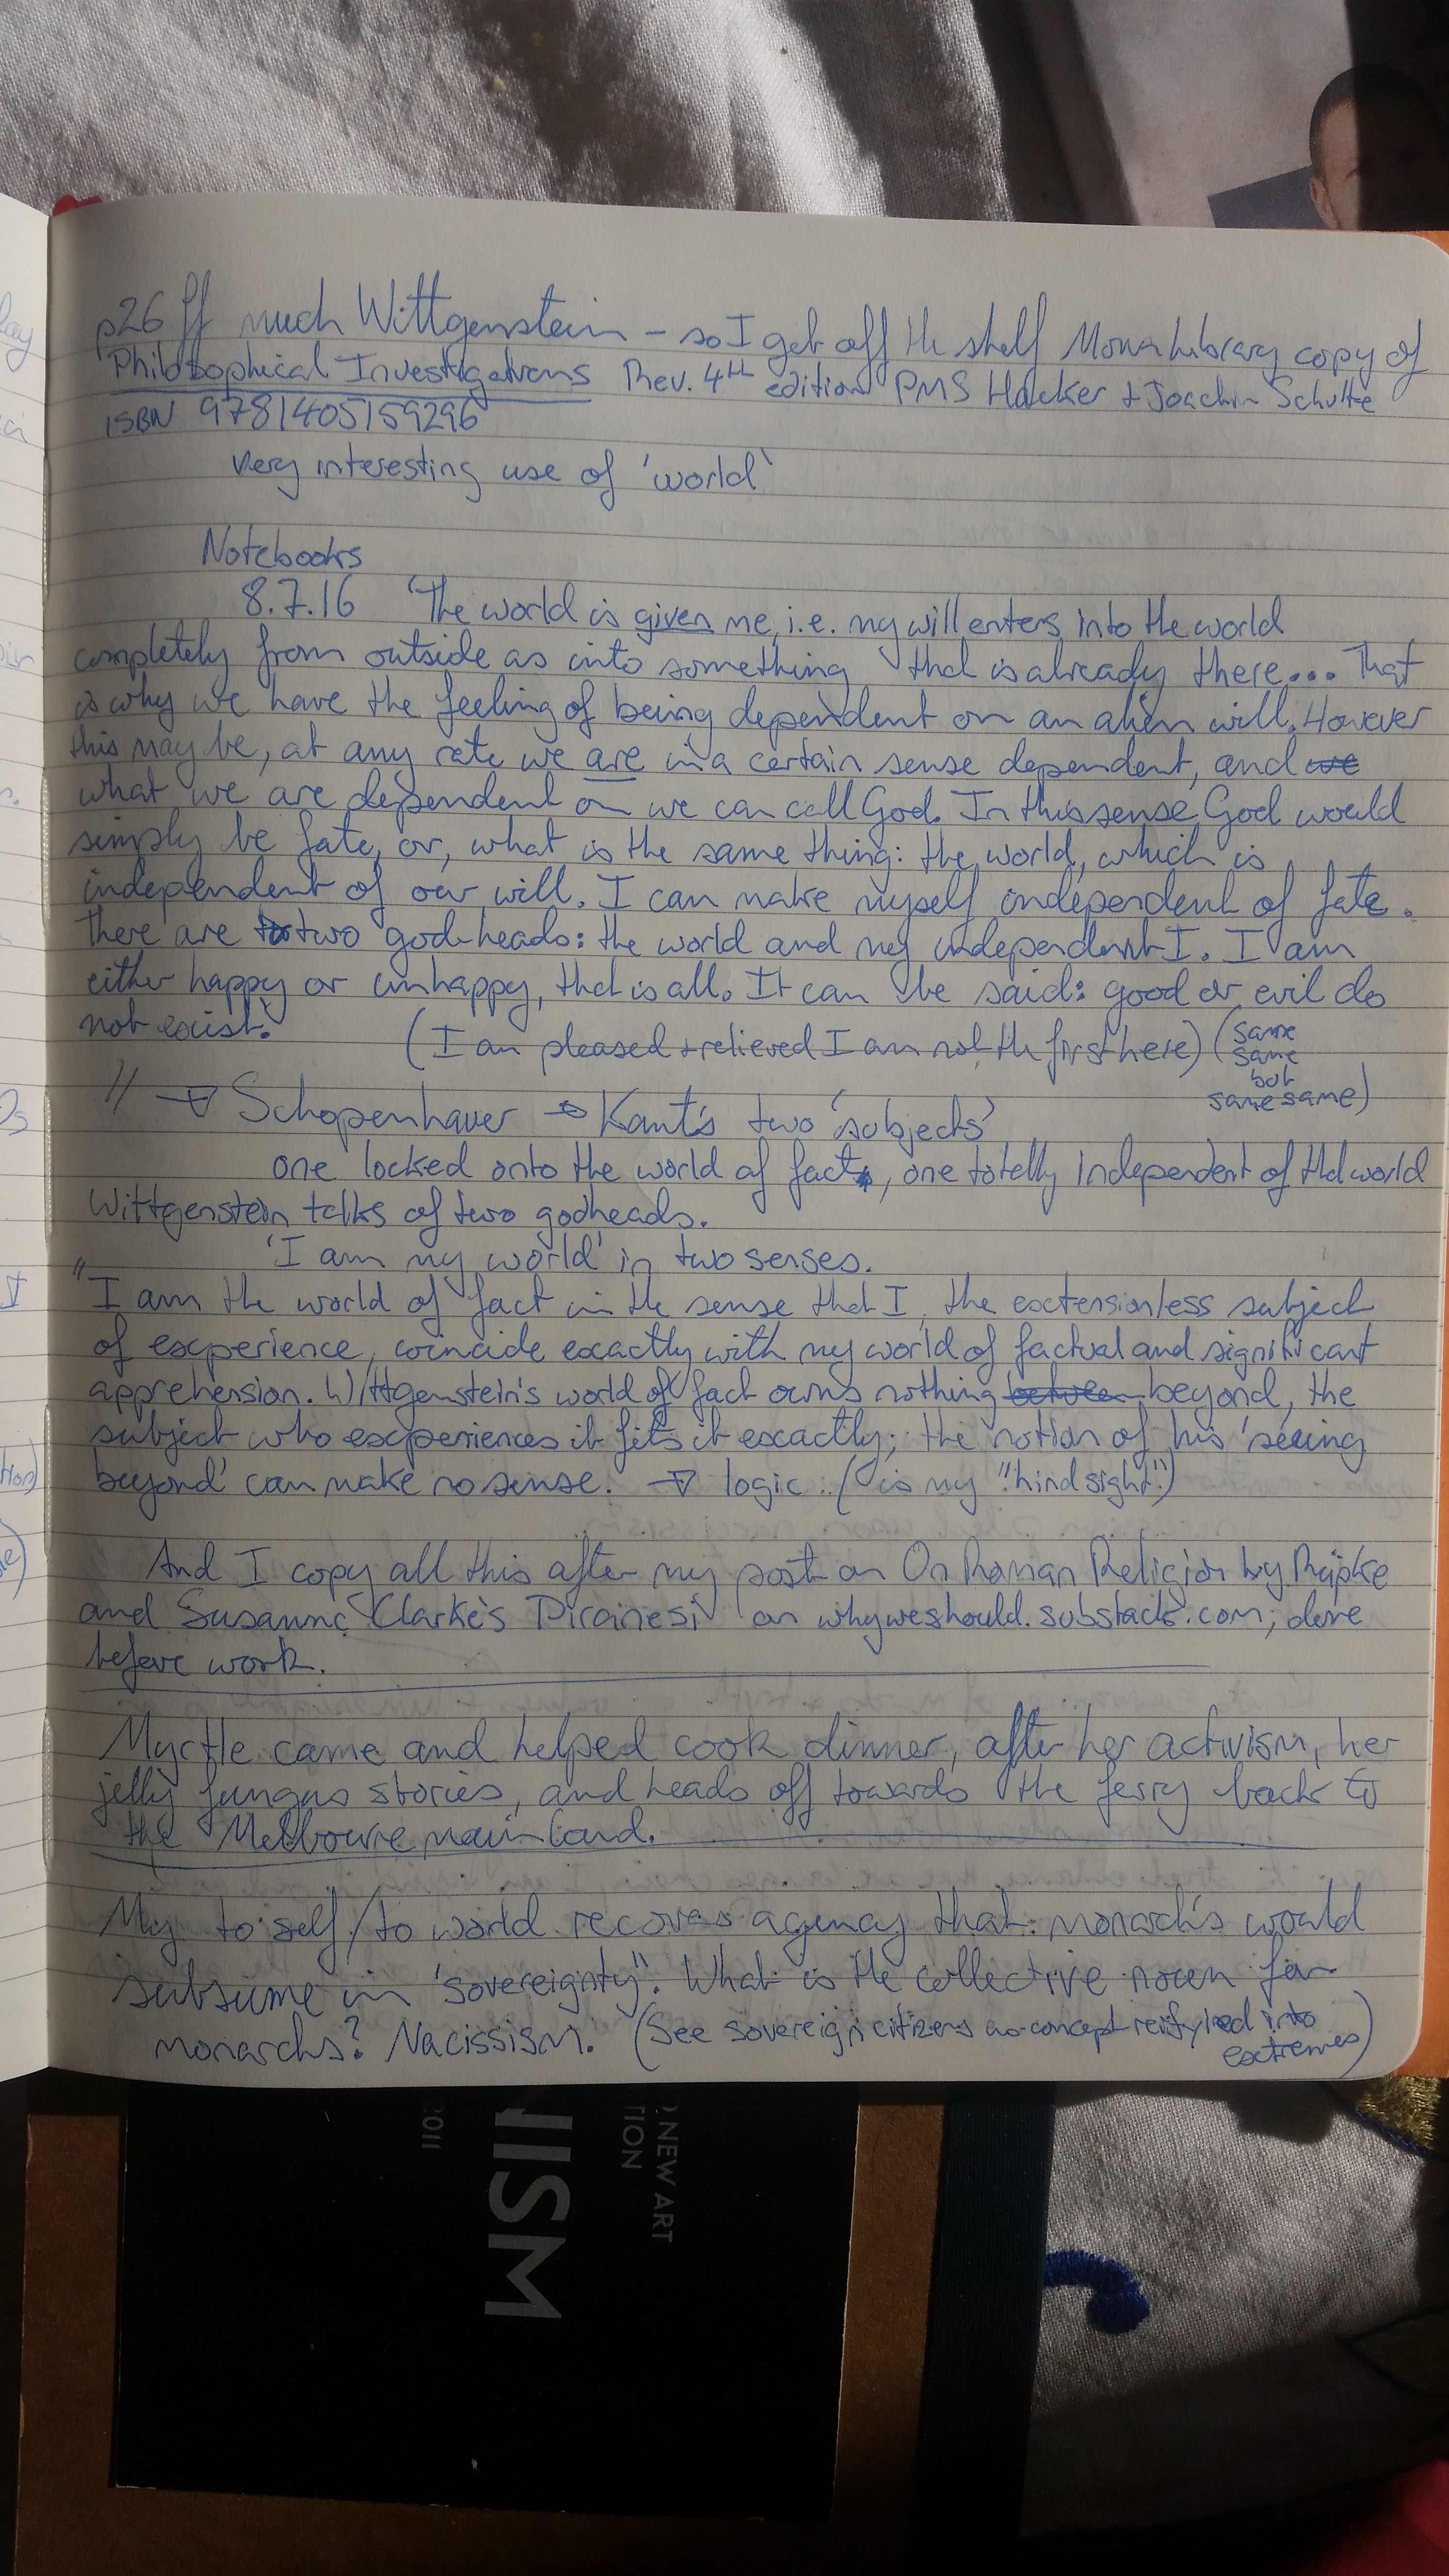 p26 ff much Wittgenstein – so I get off the shelf Mona Library copy of
Philosophical Investigations Rev. 4th edition PMS Hacker + Joachim Schulte
ISBN 9781405159296
very interesting use of 'world'
Notebooks
8.7.16 'The world is given me, i.e. my will enters into the world
completely from outside as into something that is already there... That
is why we have the feeling of being dependent on an alien will. However
this may be, at any rate we are in a certain sense dependent, and we
what we are dependent on we can call God. In this sense God would
simply be fate, or, what is the same thing: the world, which is
independent of our will. I can make myself independent of fate.
There are two godheads: the world and my independent I. I am
either happy or unhappy, that is all. It can be said: good or evil do
not exist.' (I am pleased + relieved I am not the first here) (same
same
but
same same)
// → Schopenhauer → Kant's two 'subjects'
one locked onto the world of fact, one totally independent of that world
Wittgenstein talks of two godheads.
'I am my world' in two senses.
"I am the world of fact in the sense that I, the extensionless subject
of experience, coincide exactly with my world of factual and significant
apprehension. Wittgenstein's world of fact owns nothing between beyond, the
subject who experiences it fits it exactly; the notion of his 'seeing
beyond' can make no sense. → logic (is my "hindsight")
And I copy all this after my post on On Roman Religion by Rüpke
and Susanne Clarke's Piranesi on whyweshould.substack.com, done
before work.
Myrtle came and helped cook dinner, after her activism, her
jelly fungus stories, and heads off towards the ferry back to
the Melbourne mainland.
My to self/to world recovers agency that monarch's would
subsume in 'sovereignty". What is the collective noun for
monarchs? Nacissism. (See sovereign citizens as concept reifyied into
extremes)
NISM
D NEW ART
TION
2011